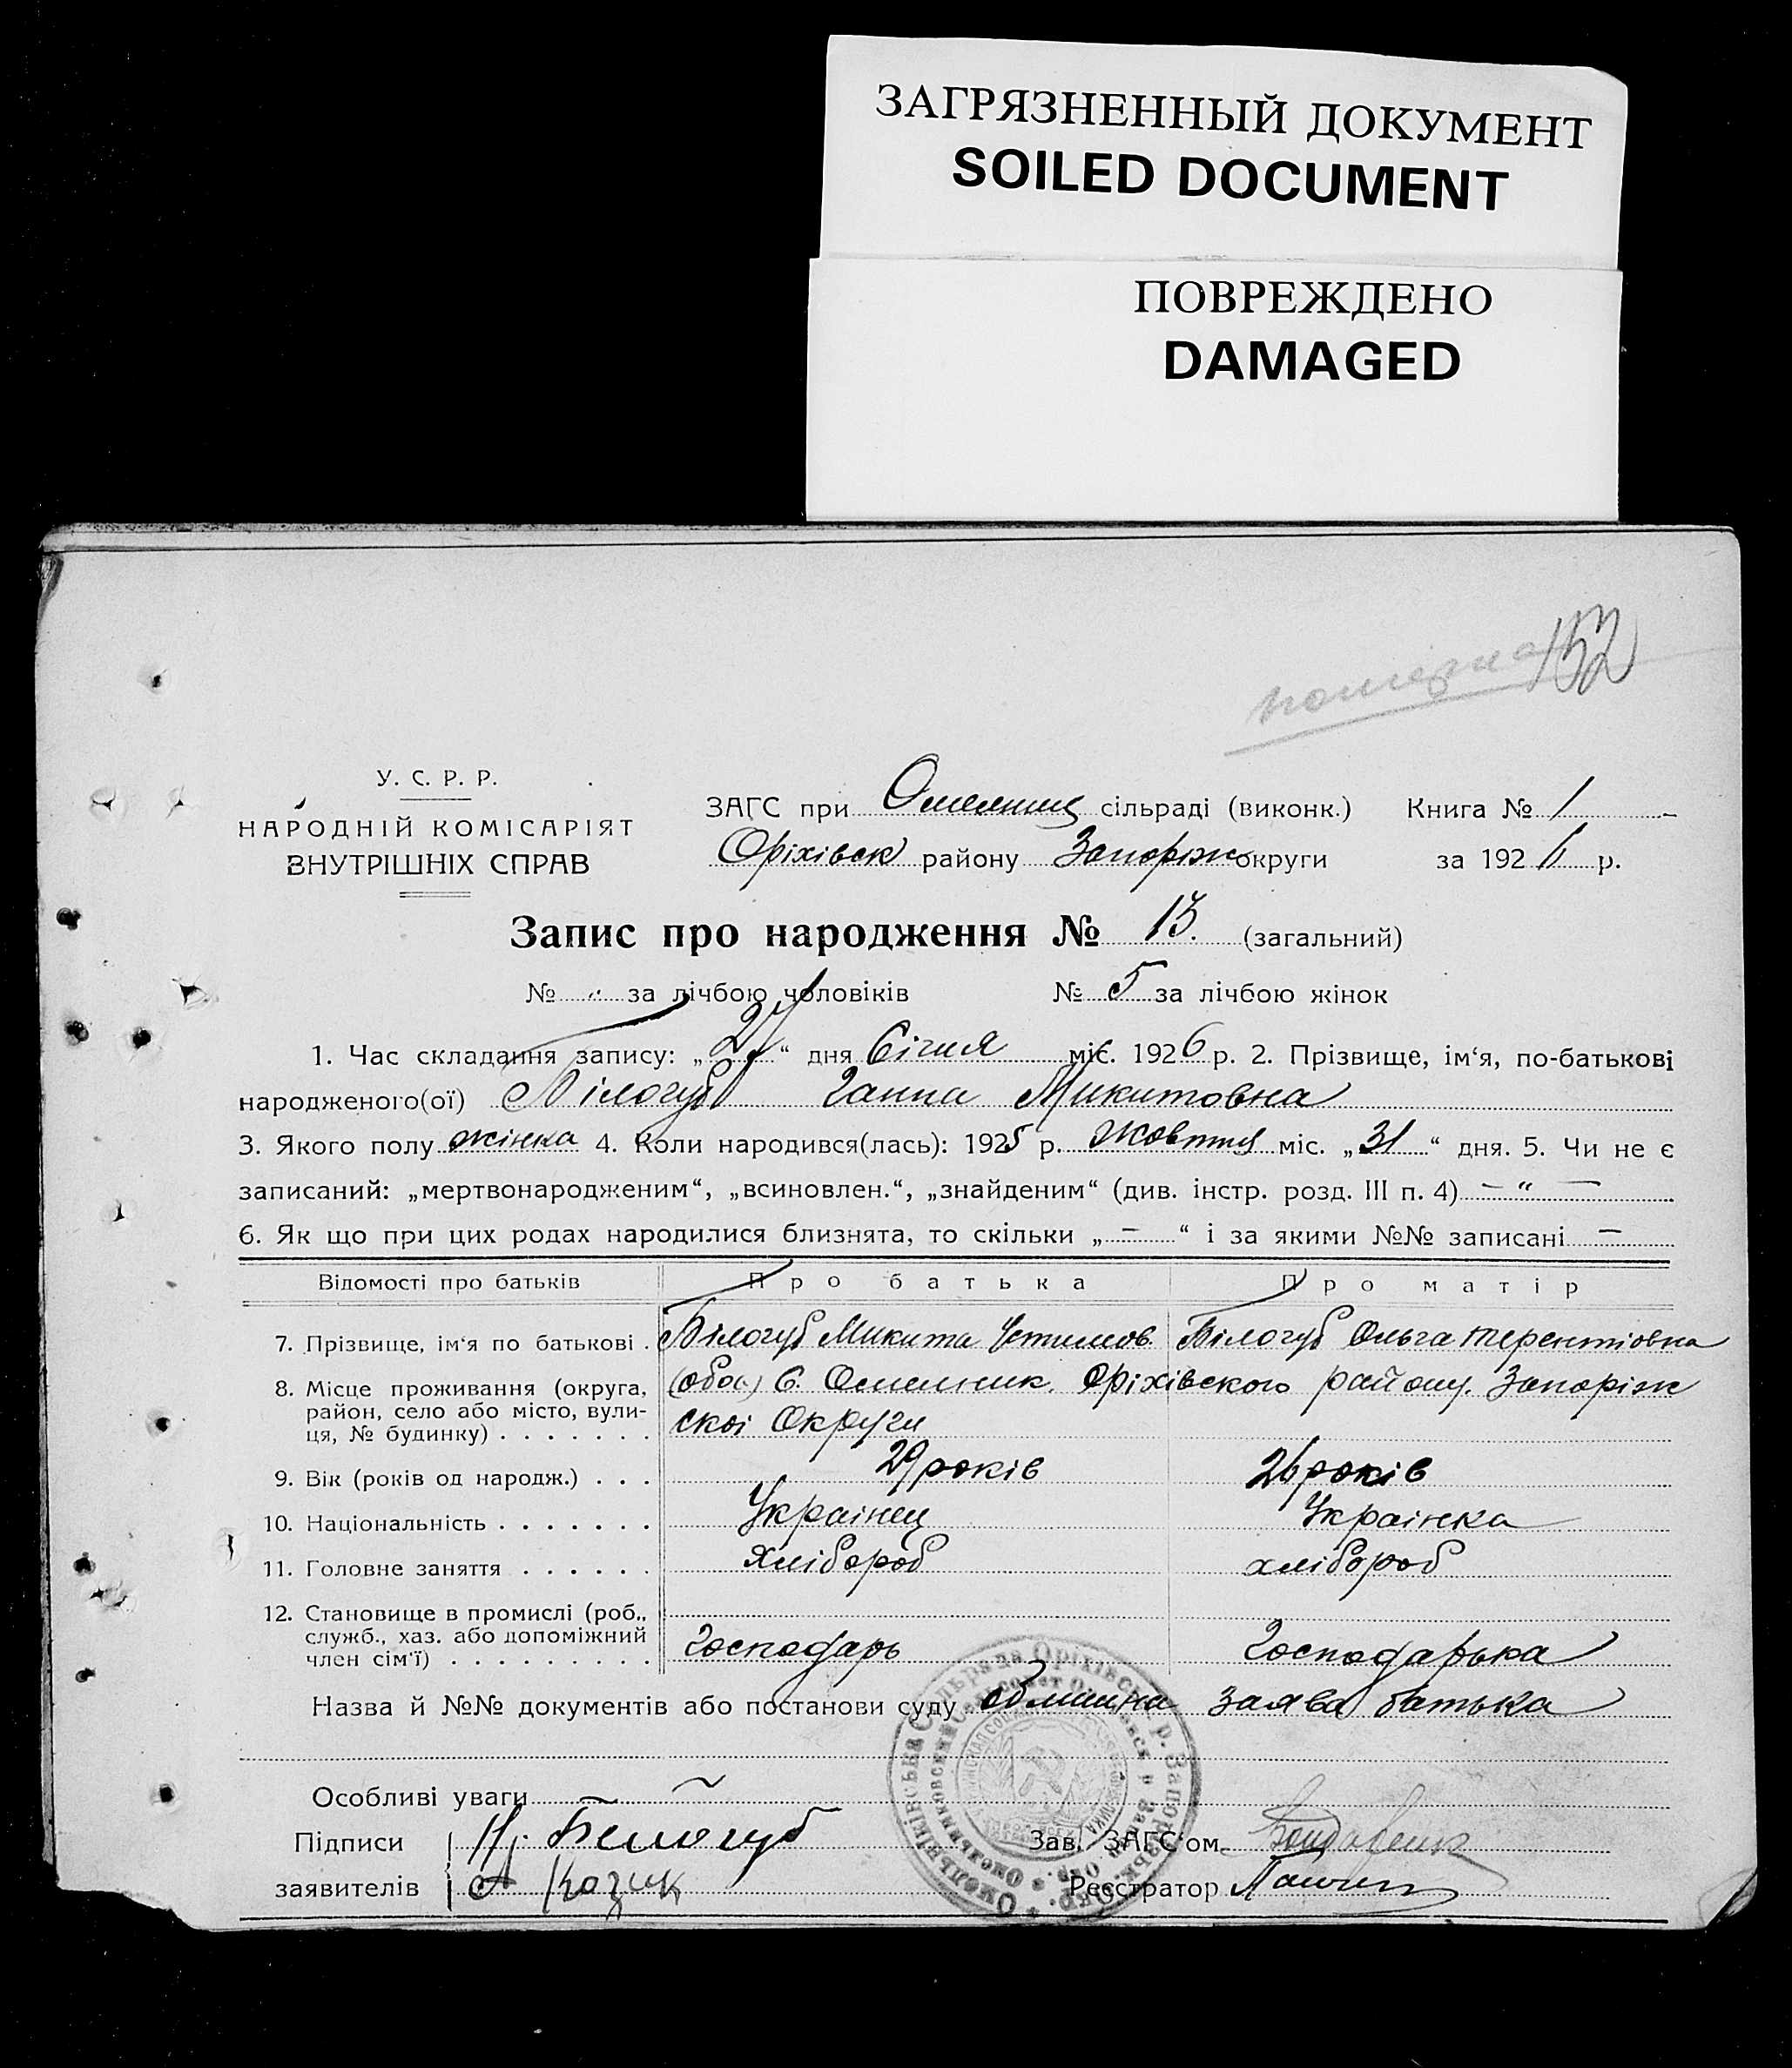 ЗАГРЯЗНЕННЫЙ ДОКУМЕНТ
SOILED DOCUMENT
ПОВРЕЖДЕНО
DAMAGED
152
У. С. Р. Р.
НАРОДНІЙ КОМІСАРІЯТ
ВНУТРІШНІХ СПРАВ
ЗАГС при Омельниц сільраді (виконк.) Книга № 1
Оріхівськ району Запоріж округи за 1926 р.
Запис про народження № 13. (загальний)
№ „ за лічбою чоловіків № 5 за лічбою жінок
1. Час складання запису: „27“ дня Січня міс. 1926 р. 2. Прізвище, ім‘я, по-батькові
народженого(ої) Білогуб Ганна Микитовна
3. Якого полу жінка 4. Коли народився(лась): 1925 р. Жовтня міс. „31“ дня. 5. Чи не є
записаний: „мертвонародженим“, „всиновлен.“, „знайденим“ (див. інстр. розд. III п. 4) — “ —
6. Як що при цих родах народилися близнята, то скільки „ — “ і за якими №№ записані —
Відомості про батьків Про батька Про матір
7. Прізвище, ім‘я по батькові . Білогуб Микита Устимов. Білогуб Ольга Терентіовна
8. Місце проживання (округа, район, село або місто, вулиця, № будинку) . . . . . . . (обоє) С. Омельник. Оріхівского району. Запоріж
скоі Округи
9. Вік (років од народж.) . . . 29 років 26 років
10. Національність . . . . . . . Украінец Украінка
11. Головне заняття . . . . . . хлібороб хлібороб
12. Становище в промислі (роб., служб., хаз. або допоміжний член сім‘ї) . . . . . . . . . Господарь Господарька
Назва й №№ документів або постанови суду заява батька
Особливі уваги ~
Підписи Н. Белогуб Зав. ЗАГС‘ом
заявителів А Козик Реєстратор